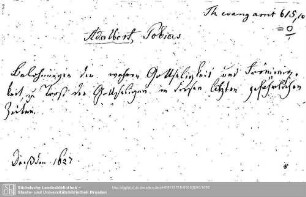 Th. evang. ascet 615,10
= 0
Adalbert, Tobias
Belohnungen der wahren Gottseligkeit und Frömmig-
keit zu Trost der Gottseligen in diesen letzten gefährlichen
Zeiten.
Dresden 1627
8
Sächsische Landesbibliothek -
Staats- und Universitätsbibliothek Dresden